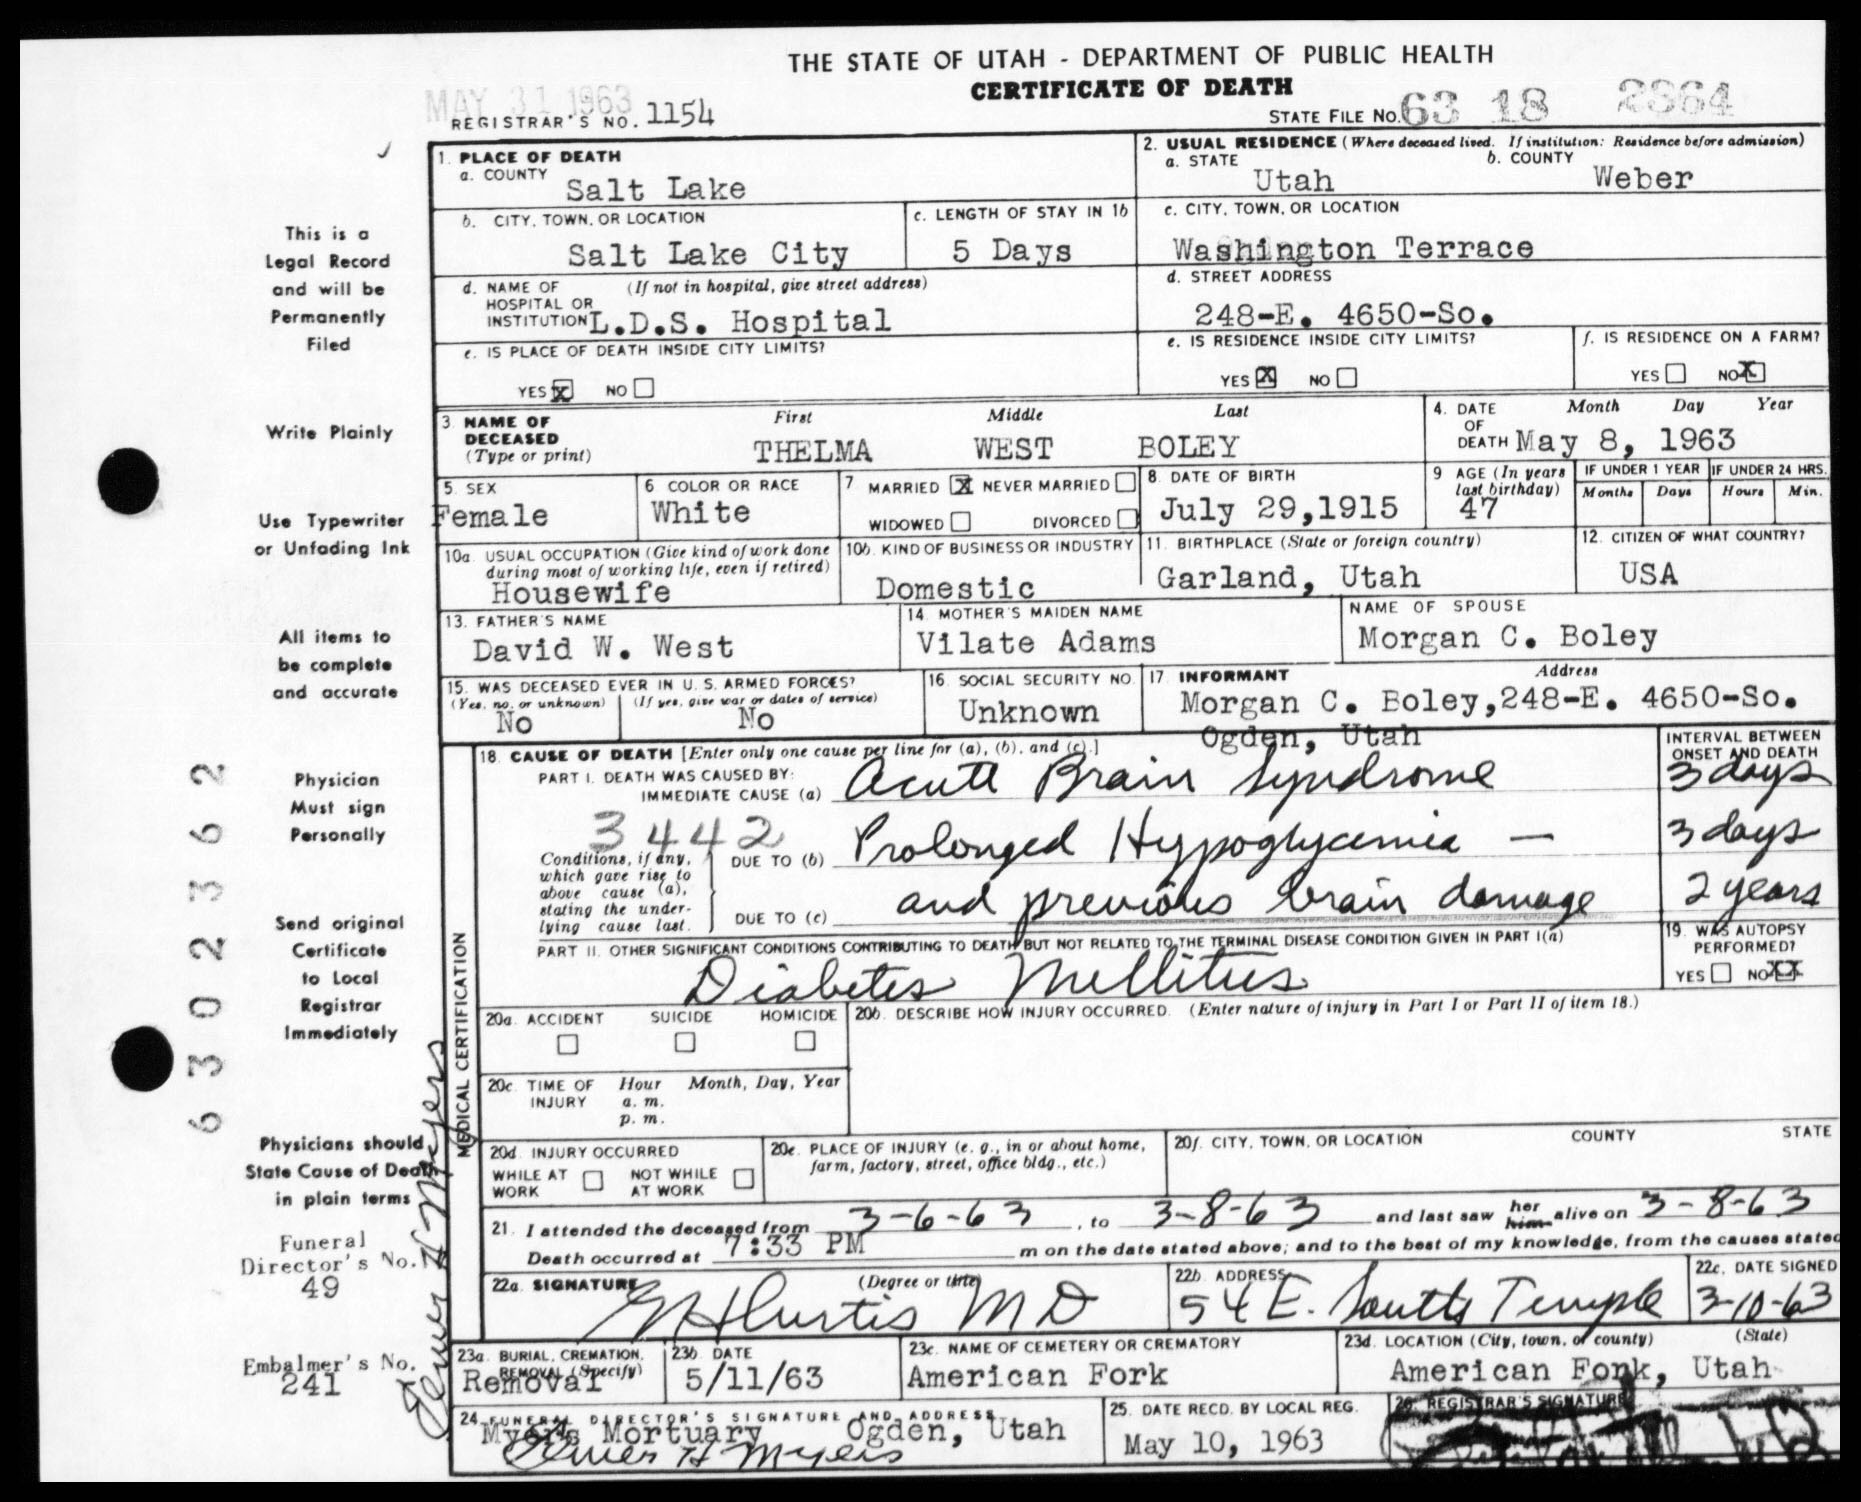 THE STATE OF UTAH - DEPARTMENT OF PUBLIC HEALTH
CERTIFICATE OF DEATH
MAY 31 1963
REGISTRAR'S NO. 1154
STATE FILE NO. 63 18 2364
This is a
Legal Record
and will be
Permanently
Filed
Write Plainly
Use Typewriter
or Unfading Ink
All items to
be complete
and accurate
Physician
Must sign
Personally
Send original
Certificate
to Local
Registrar
Immediately
Physicians should
State Cause of Death
in plain terms
Funeral
Director's No.
49
Embalmer's No.
241
Elmer H Myers
6302362
1. PLACE OF DEATH
a. COUNTY Salt Lake
b. CITY, TOWN, OR LOCATION
Salt Lake City
c. LENGTH OF STAY IN 1b
5 Days
d. NAME OF (If not in hospital, give street address)
HOSPITAL OR
INSTITUTION L.D.S. Hospital
e. IS PLACE OF DEATH INSIDE CITY LIMITS?
YES X NO
2. USUAL RESIDENCE (Where deceased lived. If institution: Residence before admission)
a. STATE b. COUNTY
Utah Weber
c. CITY, TOWN, OR LOCATION
Washington Terrace
d. STREET ADDRESS
248-E. 4650-So.
e. IS RESIDENCE INSIDE CITY LIMITS?
YES X NO
f. IS RESIDENCE ON A FARM?
YES NO X
3 NAME OF DECEASED (Type or print)
First Middle Last
THELMA WEST BOLEY
4. DATE OF DEATH Month Day Year
May 8, 1963
5. SEX
Female
6 COLOR OR RACE
White
7 MARRIED X NEVER MARRIED
WIDOWED DIVORCED
8. DATE OF BIRTH
July 29,1915
9 AGE (In years
last birthday)
47
IF UNDER 1 YEAR IF UNDER 24 HRS.
Months Days Hours Min.
10a. USUAL OCCUPATION (Give kind of work done
during most of working life, even if retired)
Housewife
10b. KIND OF BUSINESS OR INDUSTRY
Domestic
11. BIRTHPLACE (State or foreign country)
Garland, Utah
12. CITIZEN OF WHAT COUNTRY?
USA
13. FATHER'S NAME
David W. West
14. MOTHER'S MAIDEN NAME
Vilate Adams
NAME OF SPOUSE
Morgan C. Boley
15. WAS DECEASED EVER IN U. S. ARMED FORCES?
(Yes, no, or unknown) (If yes, give war or dates of service)
No No
16. SOCIAL SECURITY NO.
Unknown
17. INFORMANT Address
Morgan C. Boley,248-E. 4650-So.
Ogden, Utah
MEDICAL CERTIFICATION
18. CAUSE OF DEATH [Enter only one cause per line for (a), (b), and (c).]
INTERVAL BETWEEN
ONSET AND DEATH
PART I. DEATH WAS CAUSED BY:
IMMEDIATE CAUSE (a) Acute Brain Syndrome 3 days
3442
Conditions, if any,
which gave rise to
above cause (a),
stating the under-
lying cause last.
DUE TO (b) Prolonged Hypoglycemia — 3 days
DUE TO (c) and previous brain damage 2 years
PART II. OTHER SIGNIFICANT CONDITIONS CONTRIBUTING TO DEATH BUT NOT RELATED TO THE TERMINAL DISEASE CONDITION GIVEN IN PART I(a)
Diabetes Mellitus
19. WAS AUTOPSY
PERFORMED?
YES NO XX
20a. ACCIDENT SUICIDE HOMICIDE
20b. DESCRIBE HOW INJURY OCCURRED. (Enter nature of injury in Part I or Part II of item 18.)
20c. TIME OF INJURY Hour Month, Day, Year
a. m.
p. m.
20d. INJURY OCCURRED
WHILE AT WORK NOT WHILE AT WORK
20e. PLACE OF INJURY (e. g., in or about home,
farm, factory, street, office bldg., etc.)
20f. CITY, TOWN, OR LOCATION COUNTY STATE
21. I attended the deceased from 3-6-63, to 3-8-63 and last saw her him alive on 3-8-63
Death occurred at 7:33 PM m on the date stated above; and to the best of my knowledge, from the causes stated
22a. SIGNATURE (Degree or title)
Curtis MD
22b. ADDRESS
54 E. South Temple
22c. DATE SIGNED
3-10-63
23a. BURIAL, CREMATION,
REMOVAL (Specify)
Removal
23b. DATE
5/11/63
23c. NAME OF CEMETERY OR CREMATORY
American Fork
23d. LOCATION (City, town, or county) (State)
American Fork, Utah
24. FUNERAL DIRECTOR'S SIGNATURE AND ADDRESS
Myers Mortuary Ogden, Utah
Elmer H Myers
25. DATE RECD. BY LOCAL REG.
May 10, 1963
26. REGISTRAR'S SIGNATURE